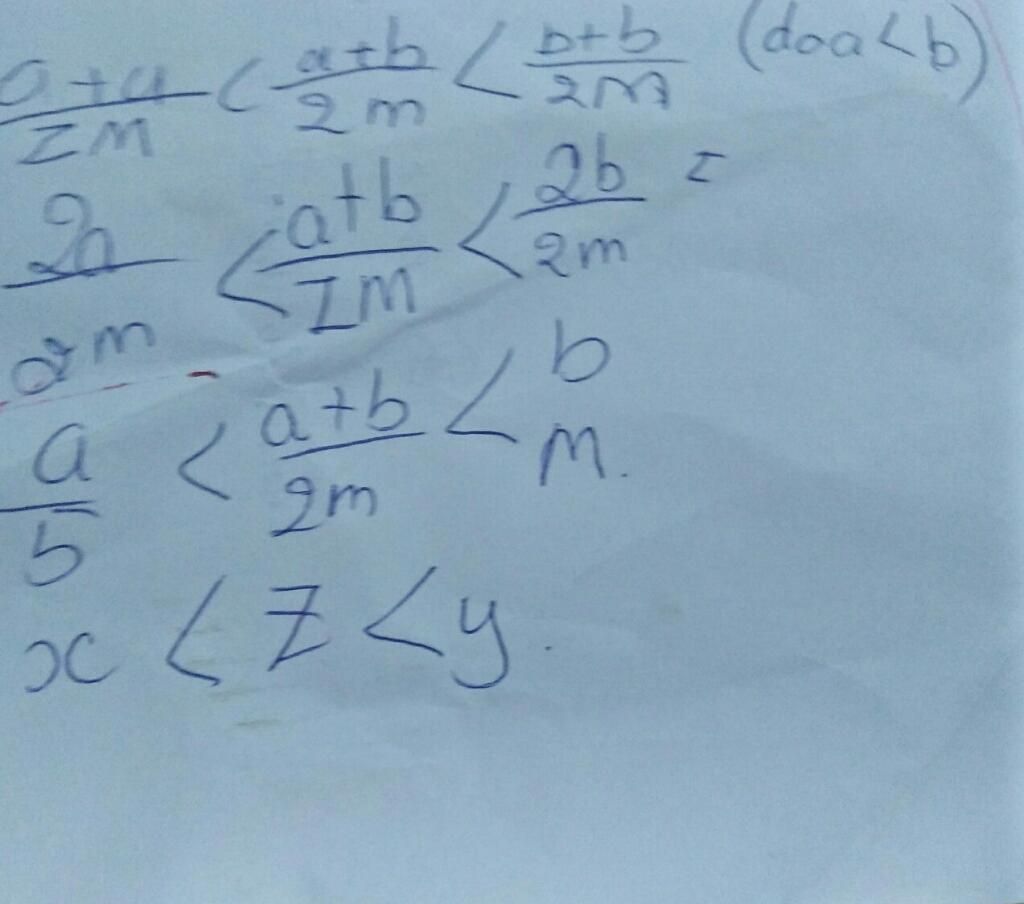 a+a/2M < a+b/2m < b+b/2M (do a<b)
2a/2m < a+b/2M < 2b/2m =
a/b < a+b/2m < b/M.
x < z < y.